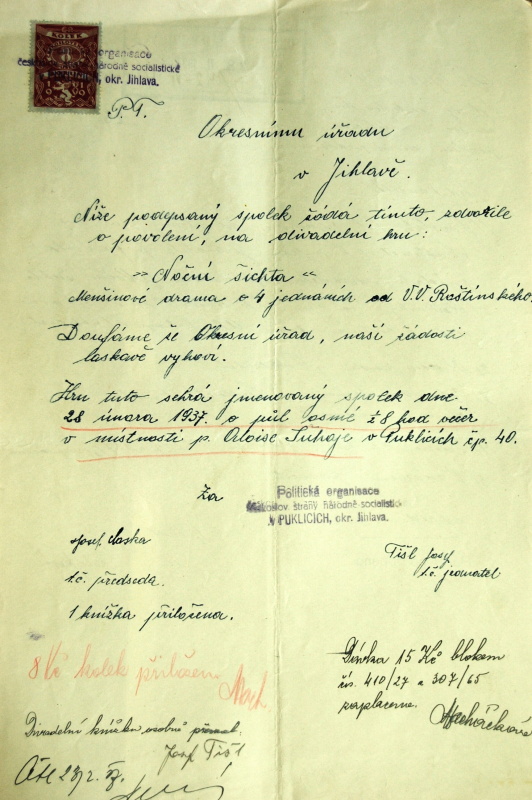 KOLEK
organisace
národně socialistické
okr. Jihlava.
P. T.
Okresnímu úřadu
v Jihlavě.
Níže podepsaný spolek žádá tímto, zdvořile
o povolení, na divadelní hru:
„Noční šichta“
Menšinové drama o 4 jednáních od V. V. Raštinského,
Doufáme že Okresní úřad, naší žádosti
laskavě vyhoví.
Hru tuto sehrá jmenovaný spolek dne
28 února 1937. o půl osmé ž 8 hod večer
v místnosti p. Aloise v Puklicích čp. 40.
Za
Politická organisace
českoslov. strany národně socialistic
v PUKLICÍCH, okr. Jihlava.
Josef
t.č. předseda.
Tišl Josef
t.č. jednatel
1 knížka přiložena.
8 Kč kolek přiložen
Dávka 15 Kč blokem
čís. 410/27 a 307/65
zaplacena.
Divadelní knížku osobně
Josef Tišl